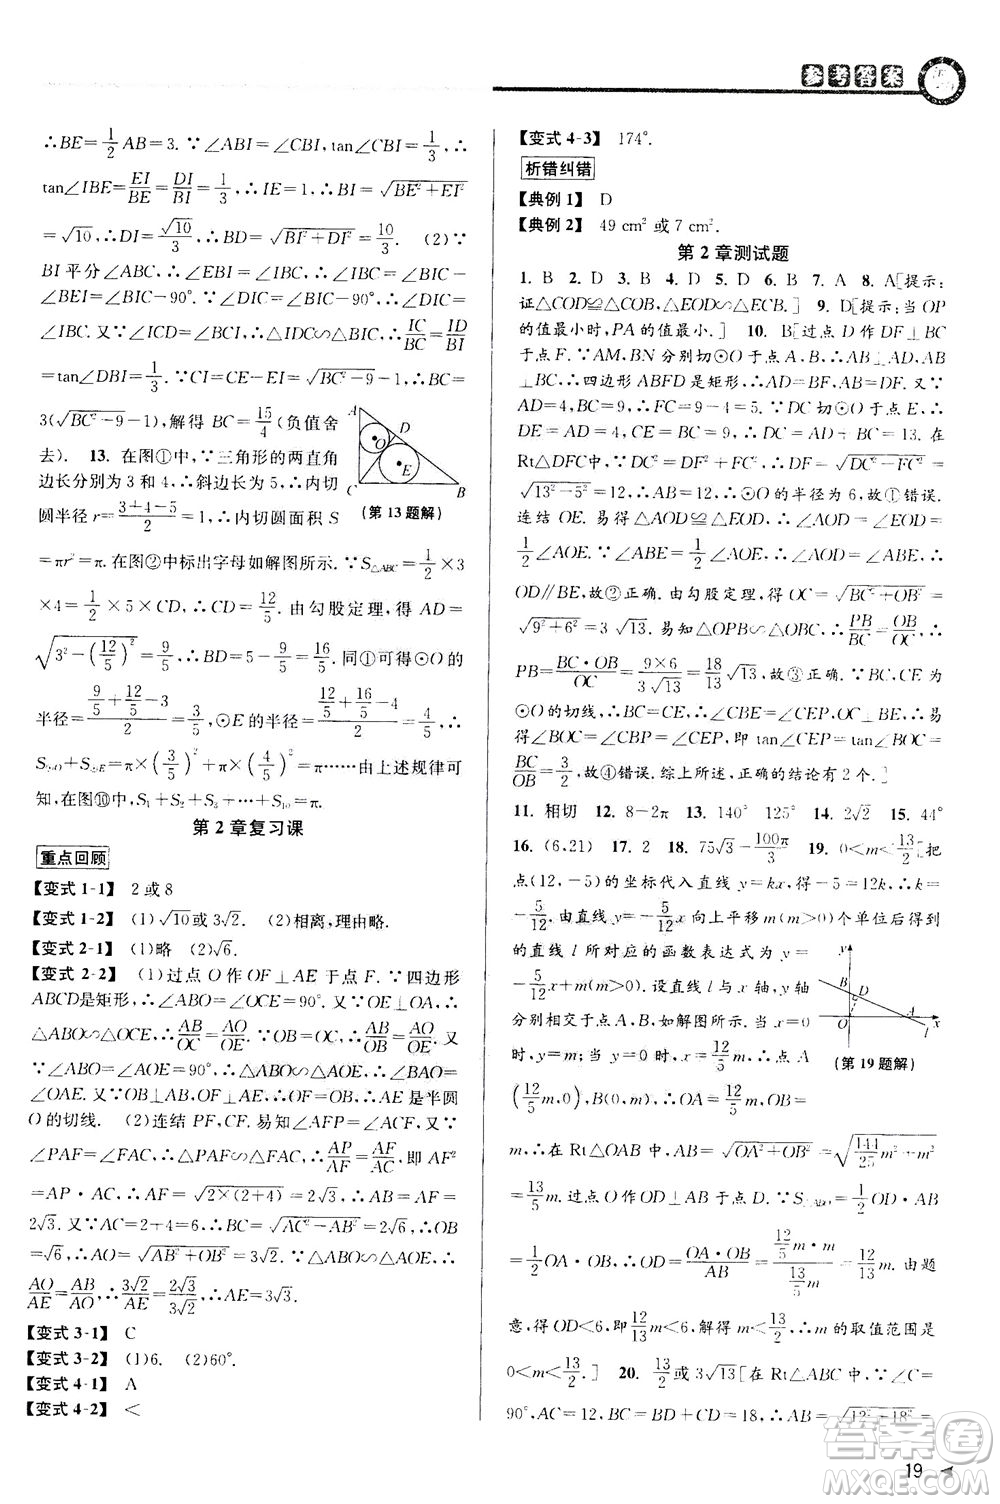 参考答案
∴BE=1/2 AB=3. ∵∠ABI=∠CBI, tan∠CBI=1/3, ∴
tan∠IBE=EI/BE=DI/BI=1/3, ∴IE=1, ∴BI=√(BE²+EI²)
=√10, ∴DI=√10/3, ∴BD=√(BI²+DI²)=10/3. (2)∵
BI平分∠ABC, ∴∠ABI=∠CBI, ∵∠DIC=∠BIE=
∠BIC-90°, ∠EBI=∠BIC-90°, ∴∠DIC=∠EBI=
∠IBC. 又∵∠ICD=∠BCI, ∴△IDC∽△BIC, ∴IC/BC=ID/BI
=tan∠DBI=1/3. ∵CI=CE-EI=√(BC²-9)-1, ∴BC=
3(√(BC²-9)-1), 解得 BC=15/4 (负值舍
去). 13. 在图①中, ∵三角形的两直角
边长分别为 3 和 4, ∴斜边长为 5, ∴内切
圆半径 r=(3+4-5)/2=1, ∴内切圆面积 S
(第 13 题解)
=πr²=π. 在图②中标出字母如解图. ∵S△ABC=1/2×3
×4=1/2×5×CD, ∴CD=12/5. 由勾股定理, 得 AD=
√(3²-(12/5)²)=9/5, ∴BD=5-9/5=16/5. 同①可得⊙O 的
半径=(9/5+12/5-3)/2=3/5, ⊙E 的半径=(12/5+16/5-4)/2=4/5, ∴
S⊙O+S⊙E=π×(3/5)²+π×(4/5)²=π. 由上述规律可
知, 在图⑩中, S₁+S₂+S₃+…+S₁₀=π.
第 2 章复习课
重点回顾
【变式 1-1】 2 或 8
【变式 1-2】 (1)√10或3√2. (2)相离, 理由略.
【变式 2-1】 (1)略 (2)√6.
【变式 2-2】 (1)过点 O 作 OF⊥AE 于点 F. ∵四边形
ABCD是矩形, ∴∠ABO=∠OCE=90°. 又∵OE⊥OA, ∴
△ABO∽△OCE, ∴AB/OC=AO/OE. ∵OB=OC, ∴AB/OB=AO/OE. 又
∵∠ABO=∠AOE=90°, ∴△ABO∽△AOE, ∴∠BAO=
∠OAE. 又∵OB⊥AB, OF⊥AE, ∴OF=OB, ∴AE 是半圆
O 的切线. (2)连结 PF, CF. 易知∠AFP=∠ACF. 又∵
∠PAF=∠FAC, ∴△PAF∽△FAC, ∴AP/AF=AF/AC, 即 AF²
=AP·AC, ∴AF=√(2×(2+4))=2√3, ∴AB=AF=
2√3. 又∵AC=2+4=6, ∴BC=√(AC²-AB²)=2√6, ∴OB
=√6, ∴AO=√(AB²+OB²)=3√2. ∵△ABO∽△AOE, ∴
AO/AE=AB/AO, ∴3√2/AE=2√3/3√2, ∴AE=3√3.
【变式 3-1】 C
【变式 3-2】 (1)6. (2)60°.
【变式 4-1】 A
【变式 4-2】 <
【变式 4-3】 174°.
析错纠错
【典例 1】 D
【典例 2】 49 cm² 或 7 cm².
第 2 章测试题
1. B 2. D 3. B 4. D 5. D 6. B 7. A 8. A[提示:
证△COD≌△COB, △EOD∽△ECB.] 9. D[提示: 当 OP
的值最小时, PA 的值最小.] 10. B[过点 D 作 DF⊥BC
于点 F. ∵AM, BN 分别切⊙O 于点 A, B, ∴AB⊥AD, AB
⊥BC, ∴四边形 ABFD 是矩形, ∴AD=BF, AB=DF. 又∵
AD=4, BC=9, ∴FC=9-4=5. ∵DC 切⊙O 于点 E, ∴
DE=AD=4, CE=BC=9, ∴DC=DE+CE=13. 在
Rt△DFC 中, ∵DC²=DF²+FC², ∴DF=√(DC²-FC²)=
√(13²-5²)=12, ∴AB=12, ∴⊙O 的半径为 6, 故①错误.
连结 OE. 易知△AOD≌△EOD, ∴∠AOD=∠EOD=
1/2∠AOE. ∵∠ABE=1/2∠AOE, ∴∠AOD=∠ABE, ∴
OD∥BE, 故②正确. 由勾股定理, 得 OC=√(BC²+OB²)=
√(9²+6²)=3√13. 易知△OPB∽△OBC, ∴PB/BC=OB/OC, ∴
PB=BC·OB/OC=9×6/3√13=18/13√13, 故③正确. ∵BC, CE 为
⊙O 的切线, ∴BC=CE, ∴∠CBE=∠CEP, OC⊥BE, 易
得∠BOC=∠CBP=∠CEP, 即 tan∠CEP=tan∠BOC=
BC/OB=3/2, 故④错误. 综上所述, 正确的结论有 2 个.]
11. 相切 12. 8-2π 13. 140° 125° 14. 2√2 15. 44°
16. (6,21) 17. 2 18. 75√3-100π/3 19. 0<m<13/2[把
点(12, -5)的坐标代入直线 y=kx, 得-5=12k, ∴k=
-5/12. 由直线 y=-5/12x 向上平移 m(m>0)个单位后得到
的直线 l 所对应的函数表达式为 y=
-5/12x+m(m>0). 设直线 l 与 x 轴, y 轴
分别相交于点 A, B, 如解图. 当 x=0
时, y=m; 当 y=0 时, x=12/5m, ∴点 A
(第 19 题解)
(12/5m, 0), B(0, m), 即 OA=12/5m, OB=
m, ∴在 Rt△OAB 中, AB=√(OA²+OB²)=√(144/25m²+m²)=
13/5m. 过点 O 作 OD⊥AB 于点 D. ∵S△OAB=1/2OD·AB
=1/2OA·OB, ∴OD=OA·OB/AB=(12/5m·m)/(13/5m)=12/13m. 由题
意, 得 OD<6, 即12/13m<6, ∴m<13/2, ∴m 的取值范围是
0<m<13/2.] 20. 13/2或3√13[在 Rt△ABC 中, ∵∠C=
90°, BC=12, AC=18, ∴AB=√(12²+18²)=
19
答案圈
MXQE.COM